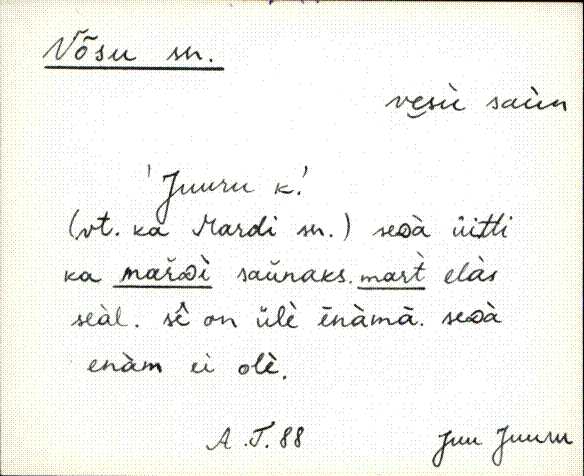 Võsu sn.
ve̮sù saùn
'Juuru k.'
(vt. ka Mardi sn.) seᴅà ǖitti
ka marᴅ̆ì saŭnaks. mart̀ elàs
seàl. sê̄ on ŭlè ēnàmā. seᴅà
enàm ei olè.
A.T. 88
Juu Juuru